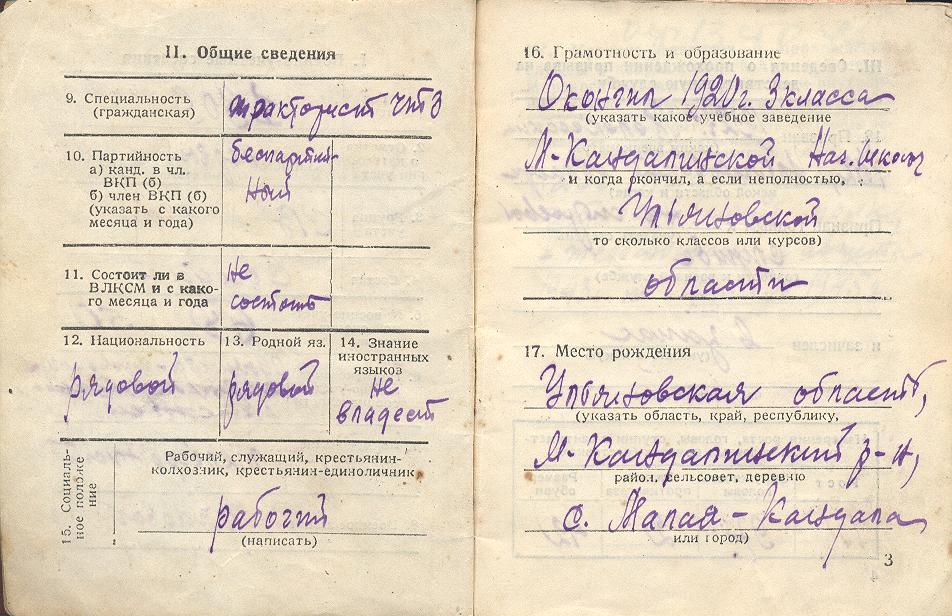 II. Общие сведения
9. Специальность
(гражданская)
тракторист ЧТЗ
10. Партийность
а) канд. в чл.
ВКП (б)
б) член ВКП (б)
(указать с какого
месяца и года)
беспартий-
ный
11. Состоит ли в
ВЛКСМ и с како-
го месяца и года
не
состоит
12. Национальность
рядовой
13. Родной яз.
рядовой
14. Знание
иностранных
языков
не
владеет
15. Социаль-
ное положе-
ние
Рабочий, служащий, крестьянин-
колхозник, крестьянин-единоличник
рабочий
(написать)
16. Грамотность и образование
Окончил 1920г. 3 класса
(указать какое учебное заведение
М-Кандалинской Нач. школы
и когда окончил, а если неполностью,
Ульяновской
то сколько классов или курсов)
области
17. Место рождения
Ульяновская область,
(указать область, край, республику,
М-Кандалинский р-н,
район, сельсовет, деревню
с. Малая-Кандала
или город)
3